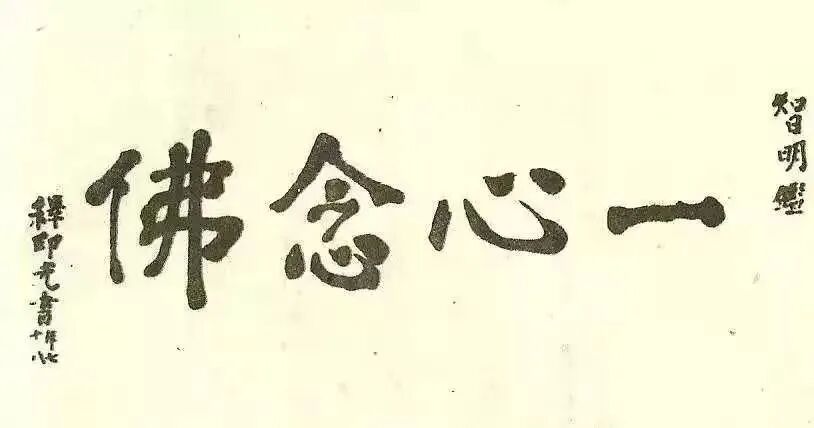 智明鑑
一心念佛
釋印光書
年七
十八